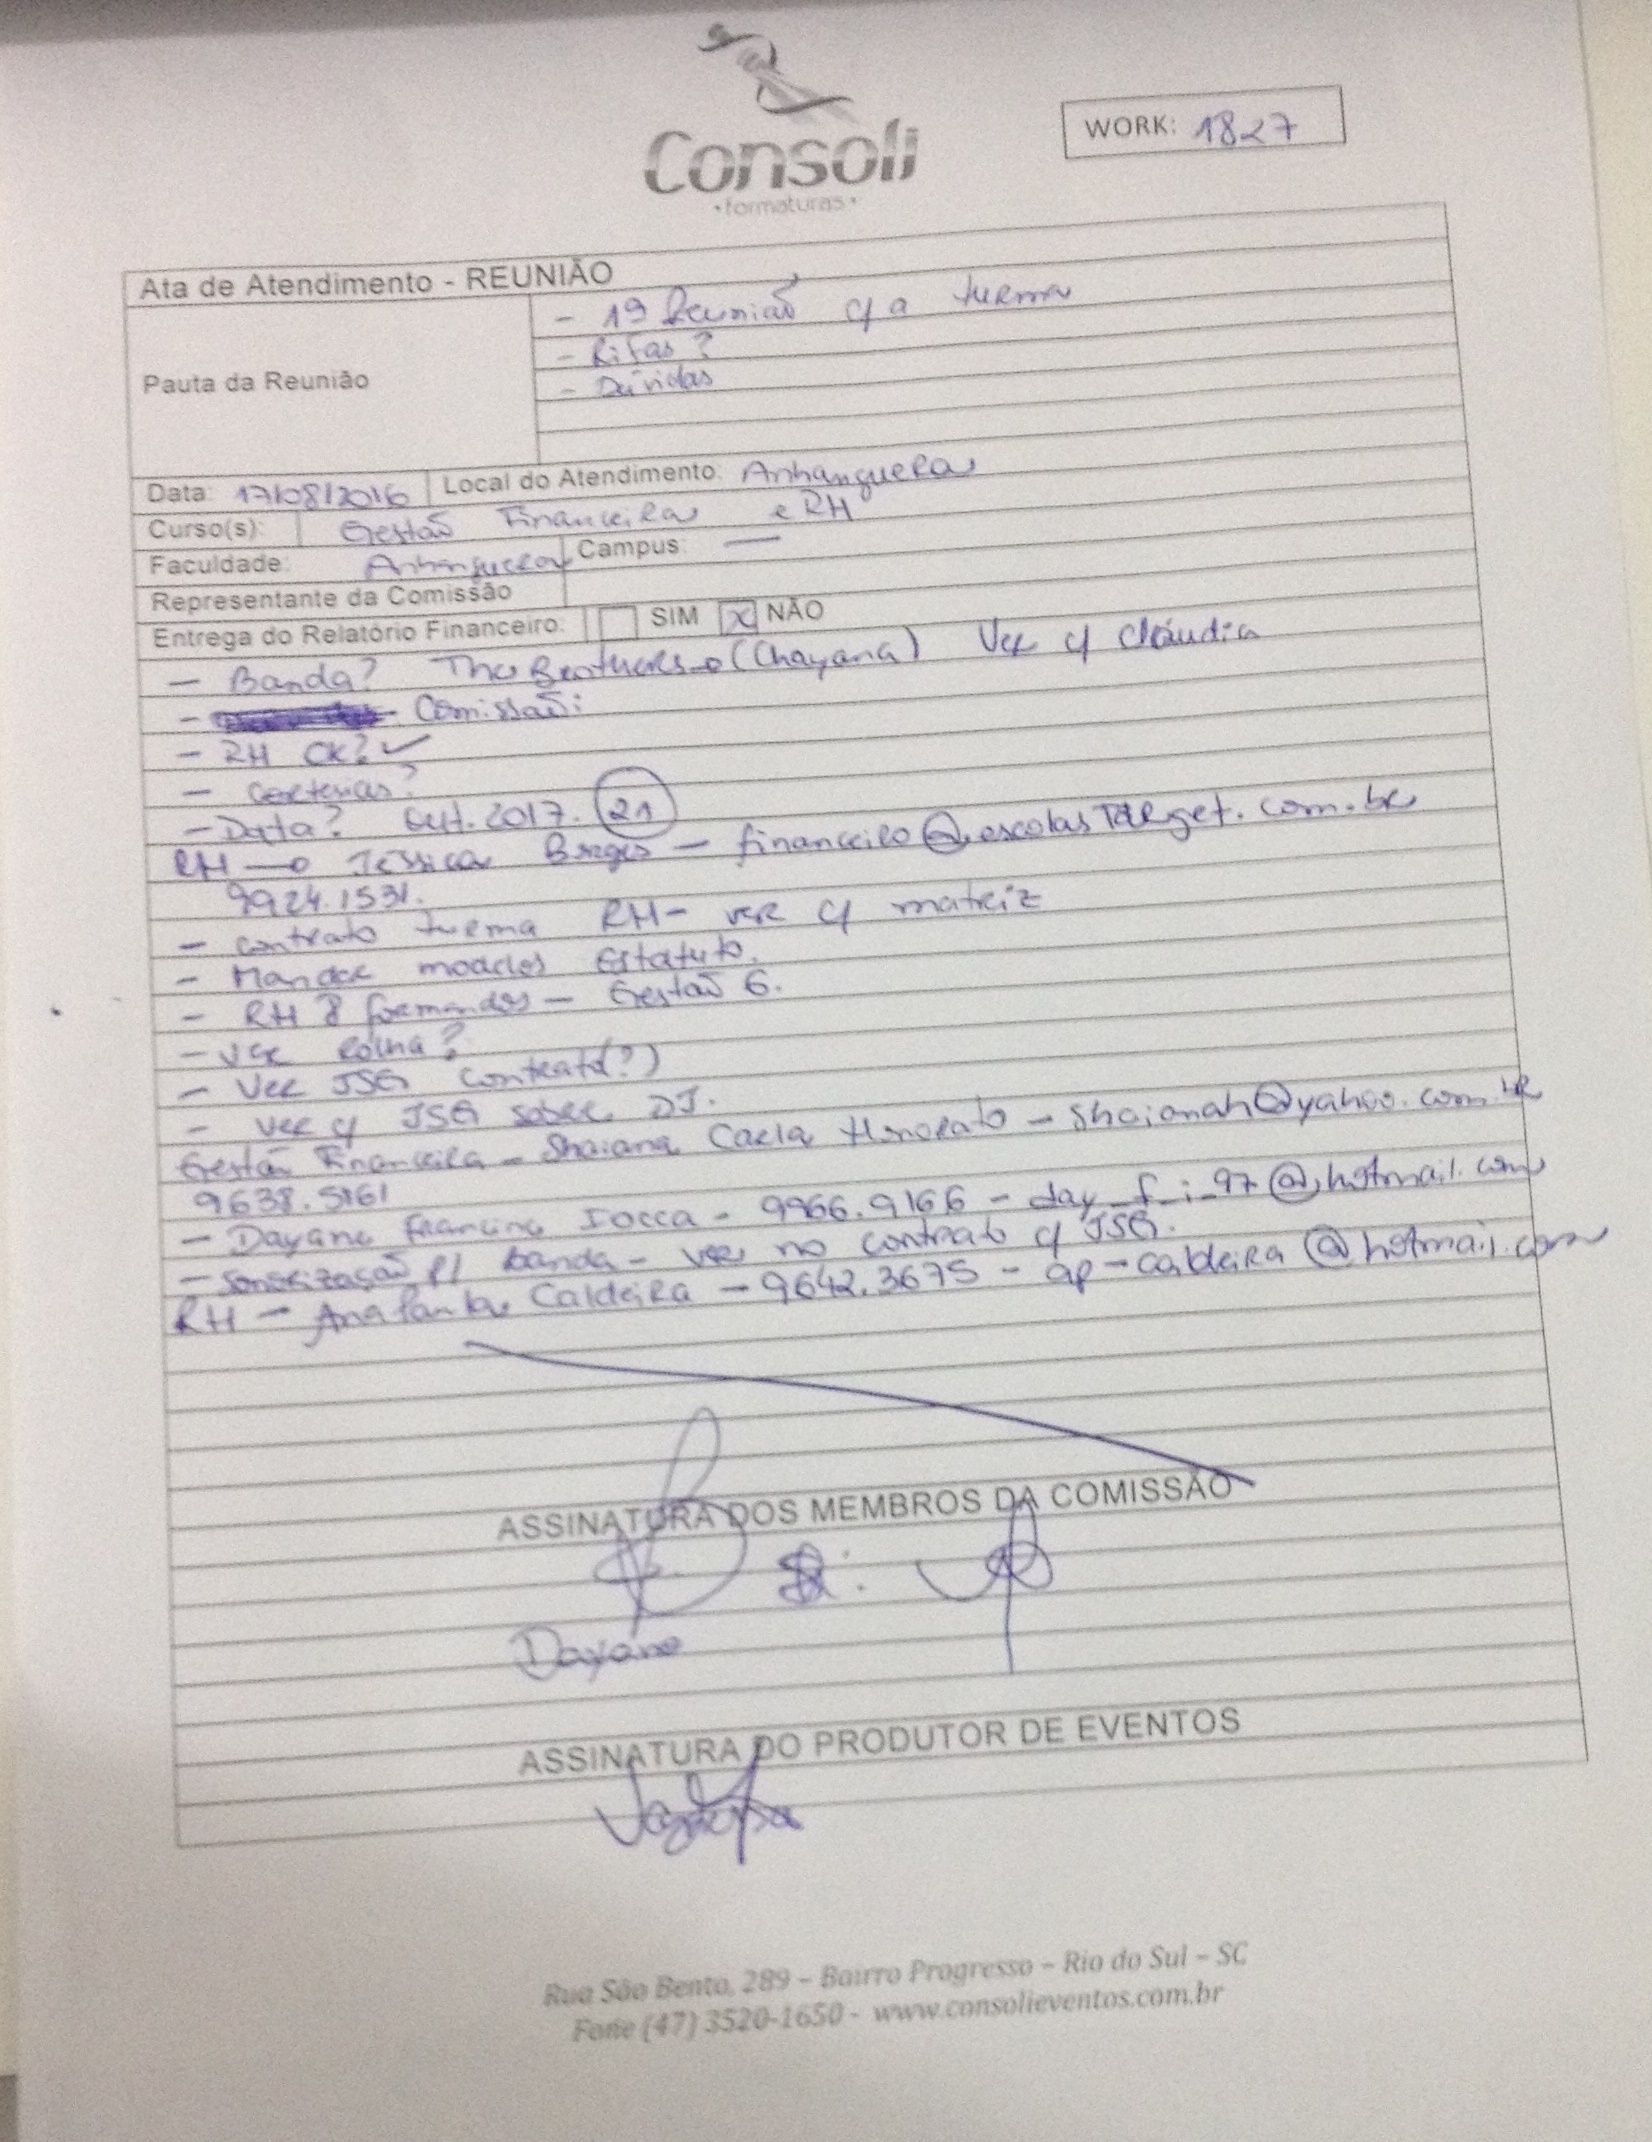 Consoli
•formaturas•
WORK: 1827
Ata de Atendimento - REUNIÃO
Pauta da Reunião
- 1ª Reunião c/ a turma
- Rifas?
- Dúvidas
Data: 17/08/2016 Local do Atendimento: Anhanguera
Curso(s): Gestão Financeira e RH
Faculdade: Anhanguera Campus: —
Representante da Comissão
Entrega do Relatório Financeiro: SIM X NÃO
- Banda? The Brothers (Chayana) Ver c/ Cláudia
- Comissão:
- RH OK? ✓
- 
- Data? Out. 2017. 21
RH → Jéssica Borges - financeiro@escolasTARget.com.br
9924.1531.
- contrato turma RH - ver c/ matriz
- Mandar modelos Estatuto.
- RH 8 formandos - Gestão 6.
- ver rolha?
- Ver JSG contrato(?)
- ver c/ JSG sobre DJ.
Gestão Financeira - Shaiana Carla Honorato - shaianah@yahoo.com.br
9638.5161
- Dayane Francine Iocca - 9966.9166 - day_f_i_97@hotmail.com
- sonorização p/ banda - ver no contrato c/ JSG.
RH - Ana Paula Caldeira - 9642.3675 - ap-caldeira@hotmail.com
ASSINATURA DOS MEMBROS DA COMISSÃO
Dayane
ASSINATURA DO PRODUTOR DE EVENTOS
Rua São Bento, 289 – Bairro Progresso – Rio do Sul – SC
Fone (47) 3520-1650 - www.consolieventos.com.br